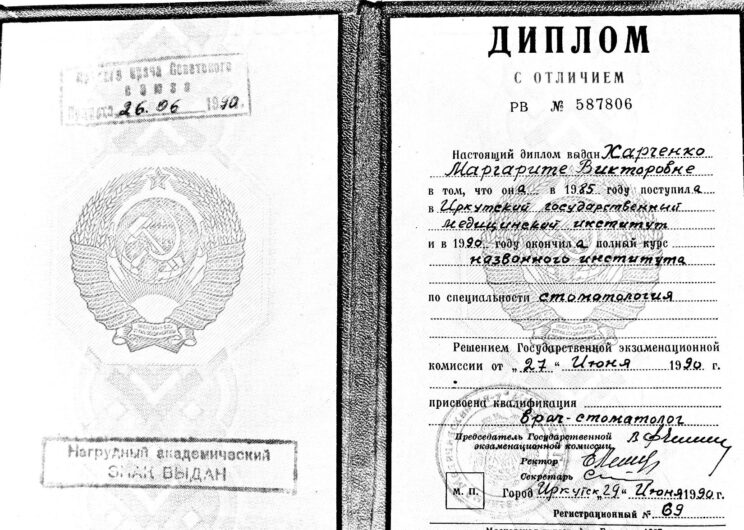 врача Советского
союза
26.06 1990г.
Нагрудный академический
ЗНАК ВЫДАН
ДИПЛОМ
С ОТЛИЧИЕМ
РВ № 587806
Настоящий диплом выдан Харченко
Маргарите Викторовне
в том, что она в 1985 году поступила
в Иркутский государственный
медицинский институт
и в 1990 году окончила полный курс
названного института
по специальности стоматология
Решением Государственной экзаменационной
комиссии от „27“ Июня 1990 г.
присвоена квалификация
врач-стоматолог
Председатель Государственной
экзаменационной комиссии
Ректор
Секретарь
М. П.
Город Иркутск „29“ Июня 1990 г.
Регистрационный №. 69